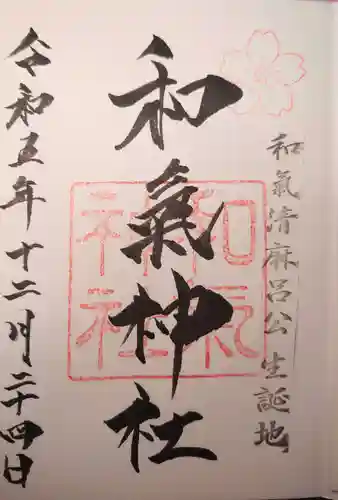 和氣清麻呂公生誕地
和氣神社
和氣神社
令和五年十二月二十四日